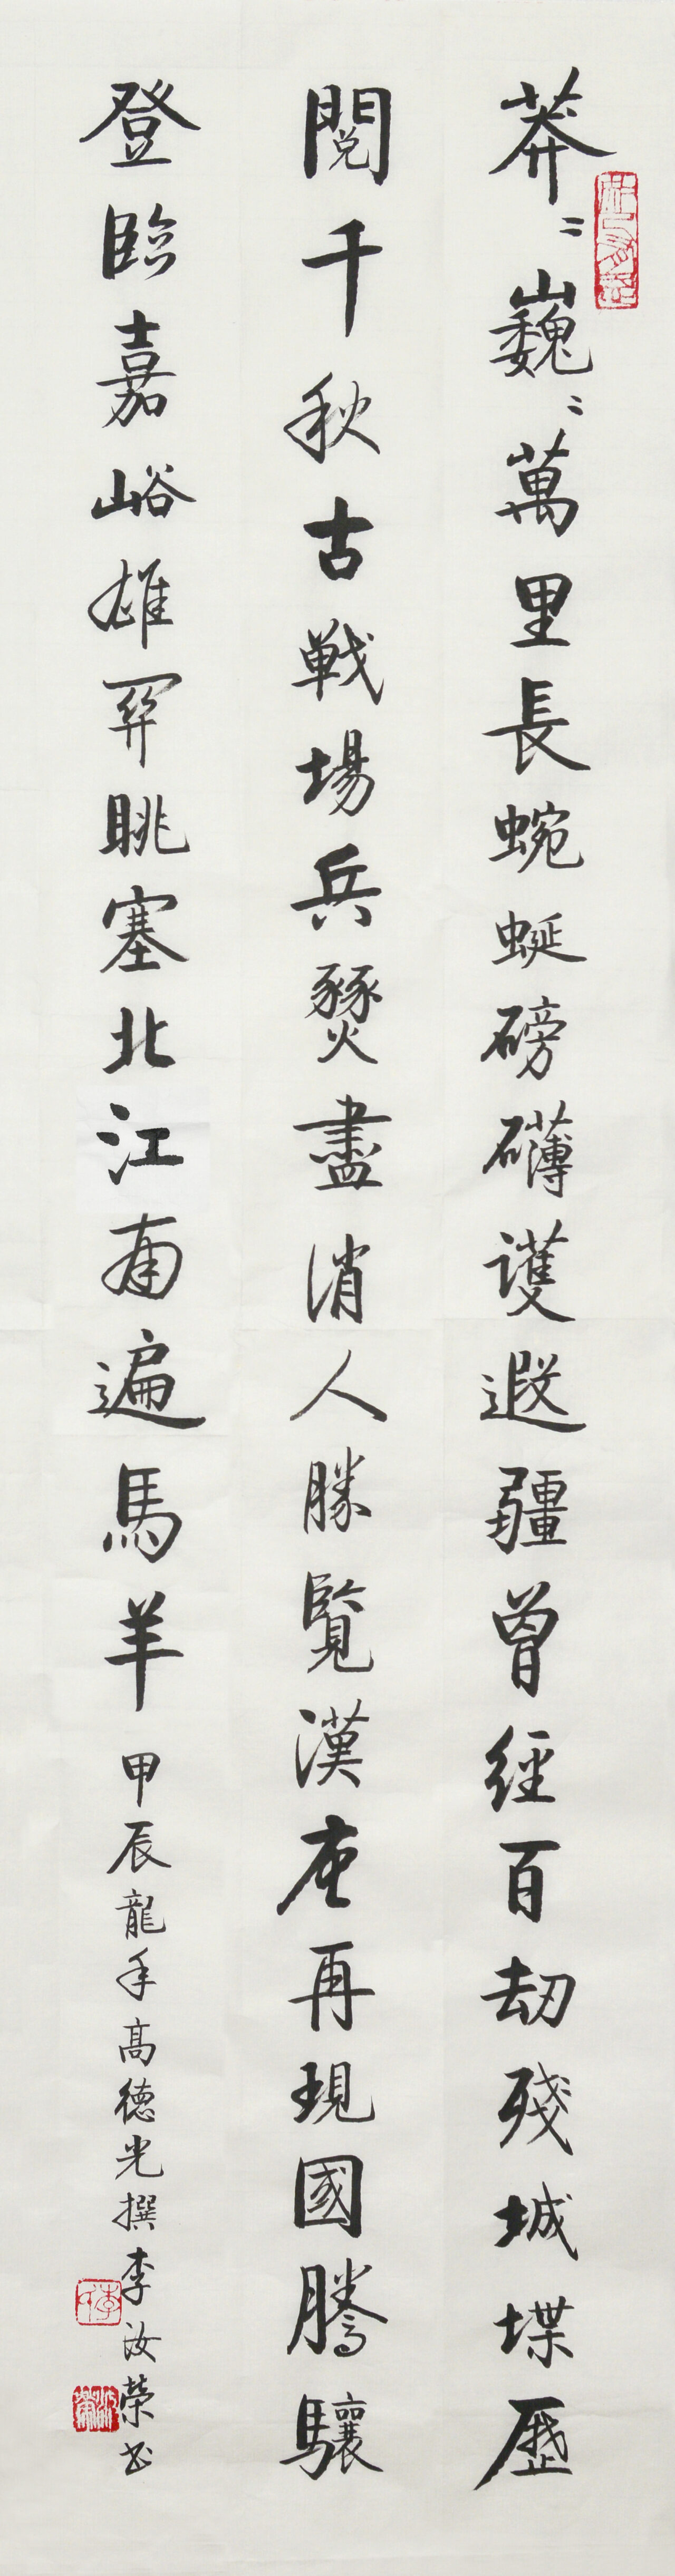 莽〻巍〻萬里長蜿蜒磅礴護遐疆曾經百劫殘城堞歷
閱千秋古戰場兵燹盡消人勝覽漢唐再現國騰驤
登臨嘉峪雄関眺塞北江南遍馬羊甲辰龍年高德光撰李汝榮書